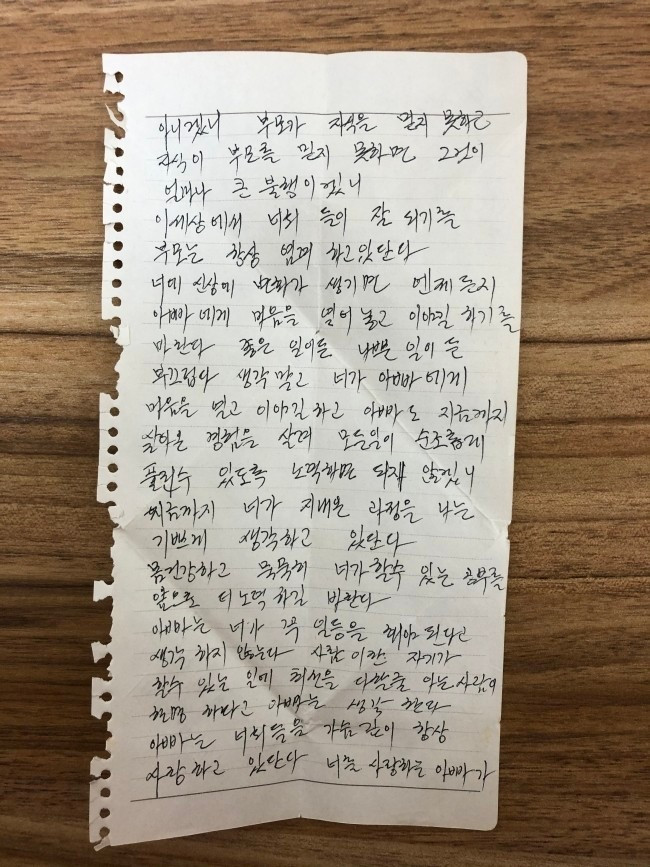 아니겠니 부모가 자식을 믿지 못하고
자식이 부모를 믿지 못하면 그것이
얼마나 큰 불행이겠니
이세상에서 너희 들이 잘 되기를
부모는 항상 염려 하고있단다
너에 신상에 변화가 생기면 엔제든지
아빠 에게 마음을 열어 놓고 이야길 하기를
바란다 좋은 일이든 나쁜 일이든
부끄럽다 생각말고 너가 아빠에게
마음을 열고 이야길하고 아빠도 지금까지
살아온 경험을 살려 모든일이 순조롭게
풀릴수 있도록 노력하면 되지 않겠니
지금까지 너가 지내온 과정을 나는
기쁘게 생각하고 있단다
몸건강하고 묵묵히 너가할수 있는 공부를
앞으로 더 노력 하길 바란다
아빠는 너가 꼭 일등을 해야 된다고
생각 하지 않는다 사람이란 자기가
할수 있는 일에 최선을 다할줄 아는 사람이
현명 하다고 아빠는 생각 한다
아빠는 너희들을 가슴깊이 항상
사랑 하고 있단다 너를 사랑하는 아빠가